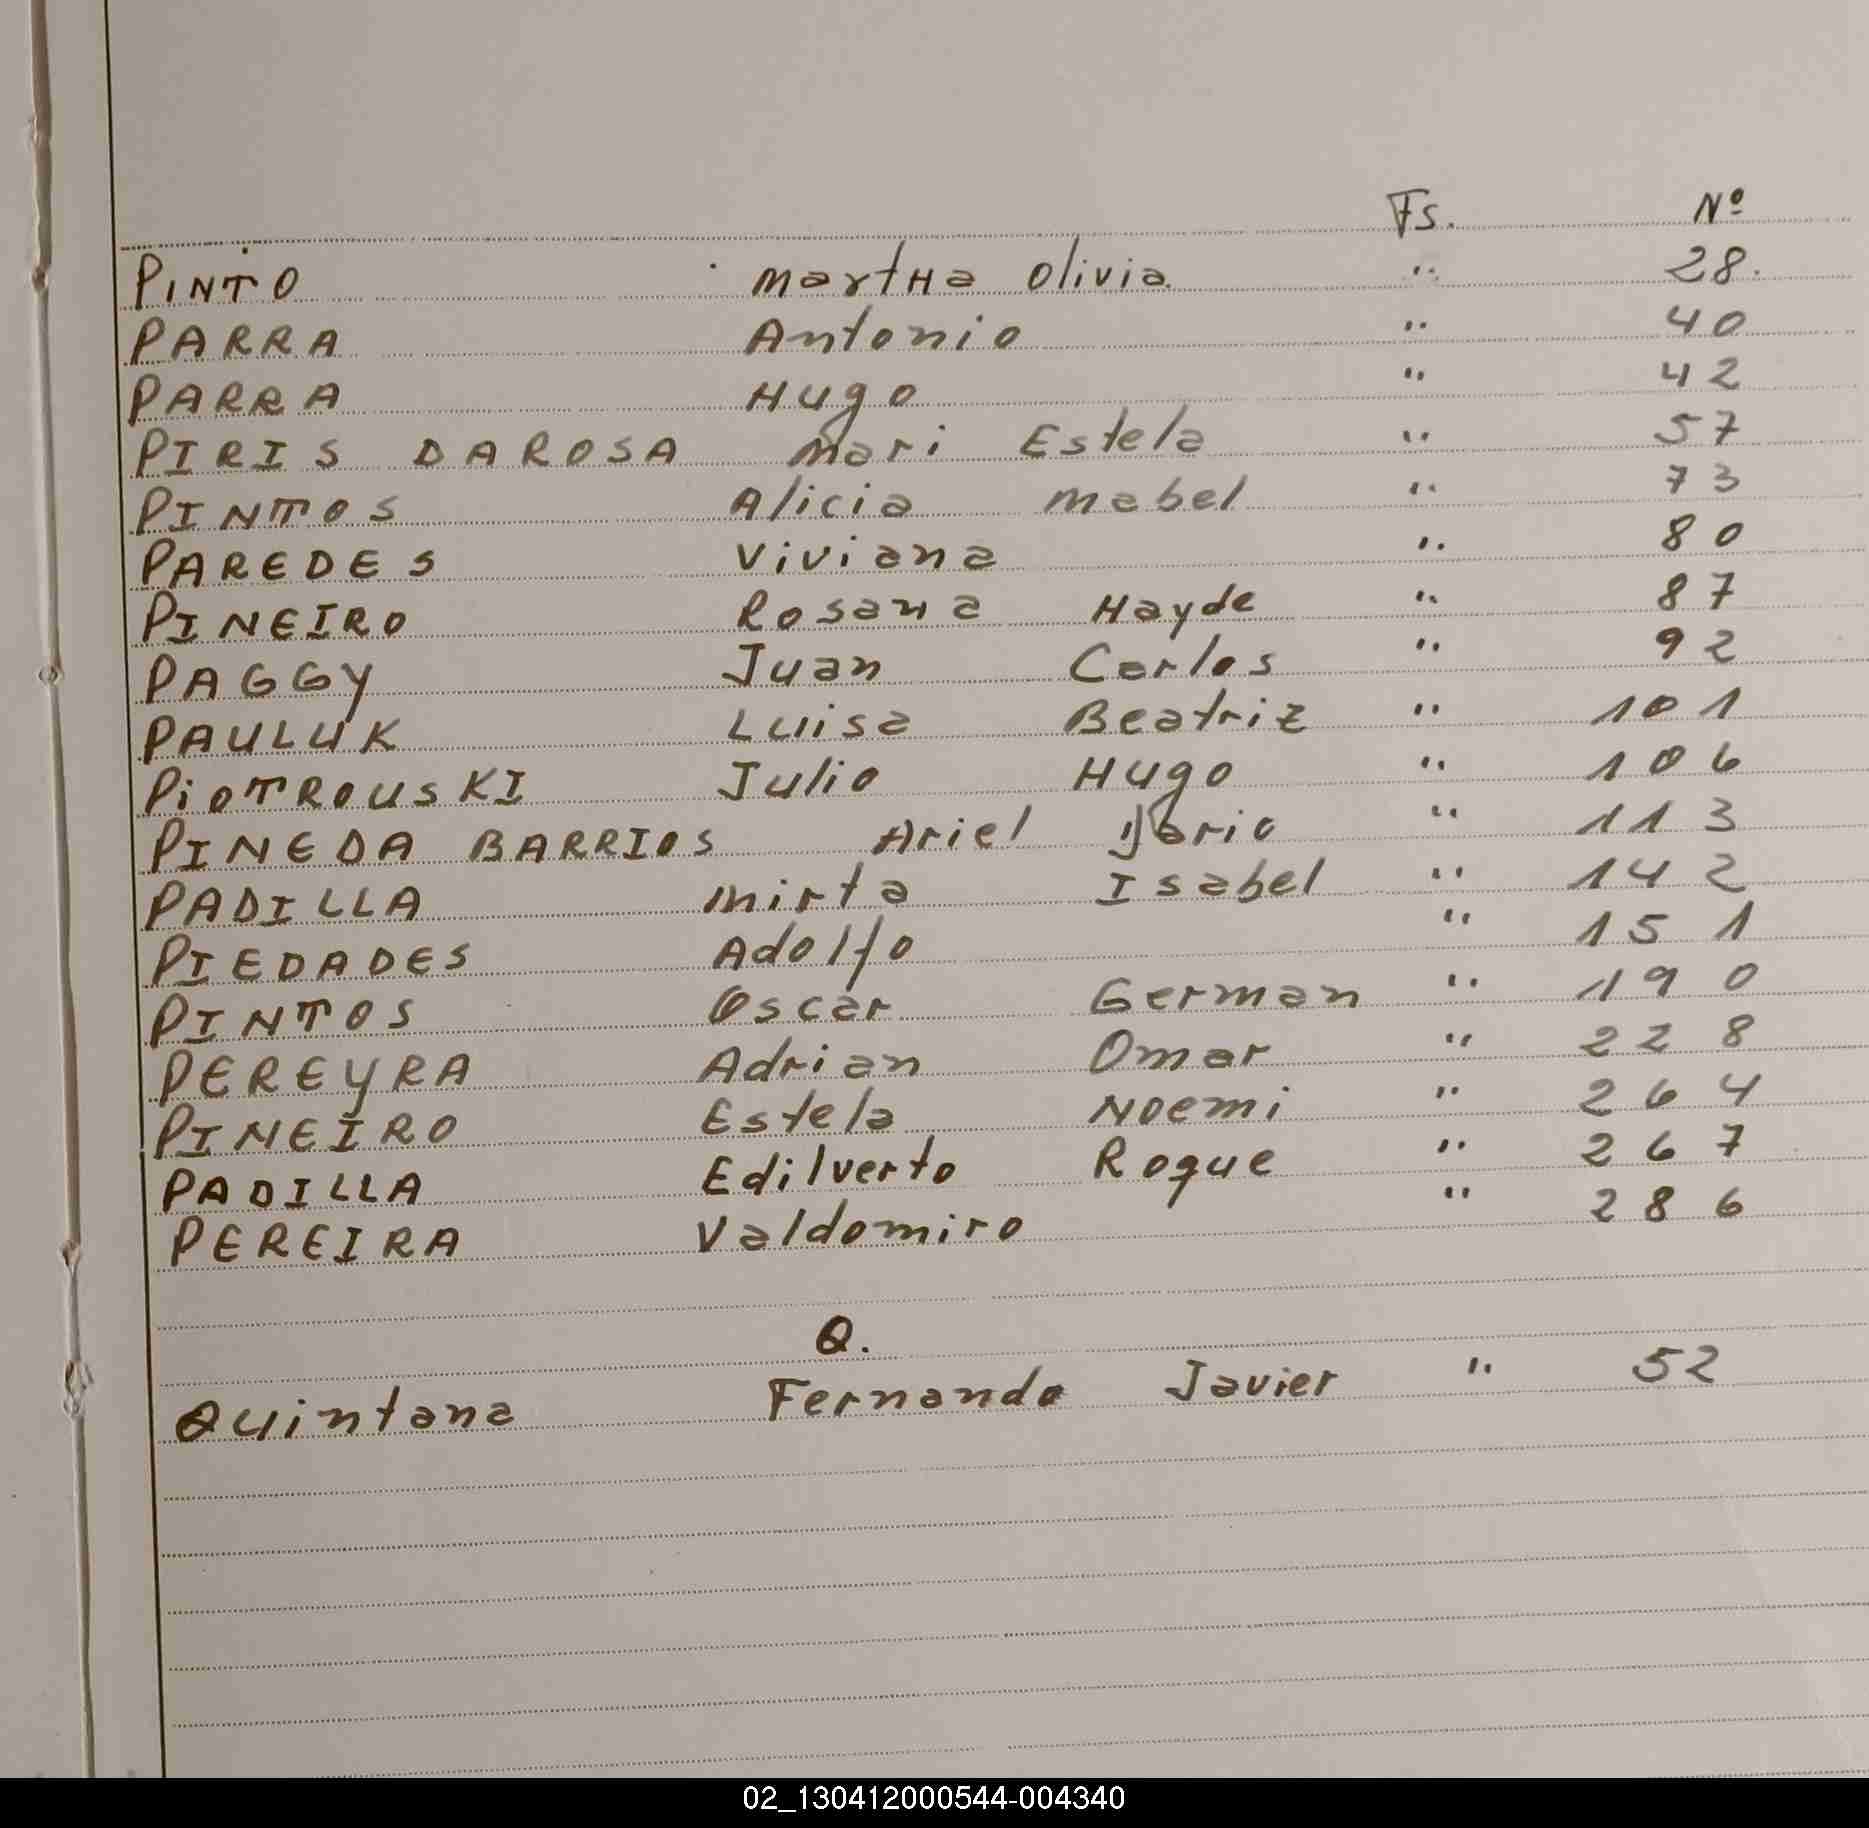 Fs. Nº
PINTO MartHa Olivia " 28.
PARRA Antonio " 40
PARRA Hugo " 42
PIRIS DAROSA Mari Estela " 57
PINTOS Alicia Mabel " 73
PAREDES Viviana " 80
PINEIRO Rosana Hayde " 87
PAGGY Juan Carlos " 92
PAULUK Luisa Beatriz " 101
PiOTROUSKI Julio Hugo " 106
PINEDA BARRIOS Ariel Dario " 113
PADILLA Mirta Isabel " 142
PIEDADES Adolfo " 151
PINTOS Oscar German " 190
PEREYRA Adrian Omar " 228
PINEIRO Estela Noemi " 264
PADILLA Edilverto Roque " 267
PEREIRA Valdomiro " 286
Q.
Quintana Fernando Javier " 52
02_130412000544-004340